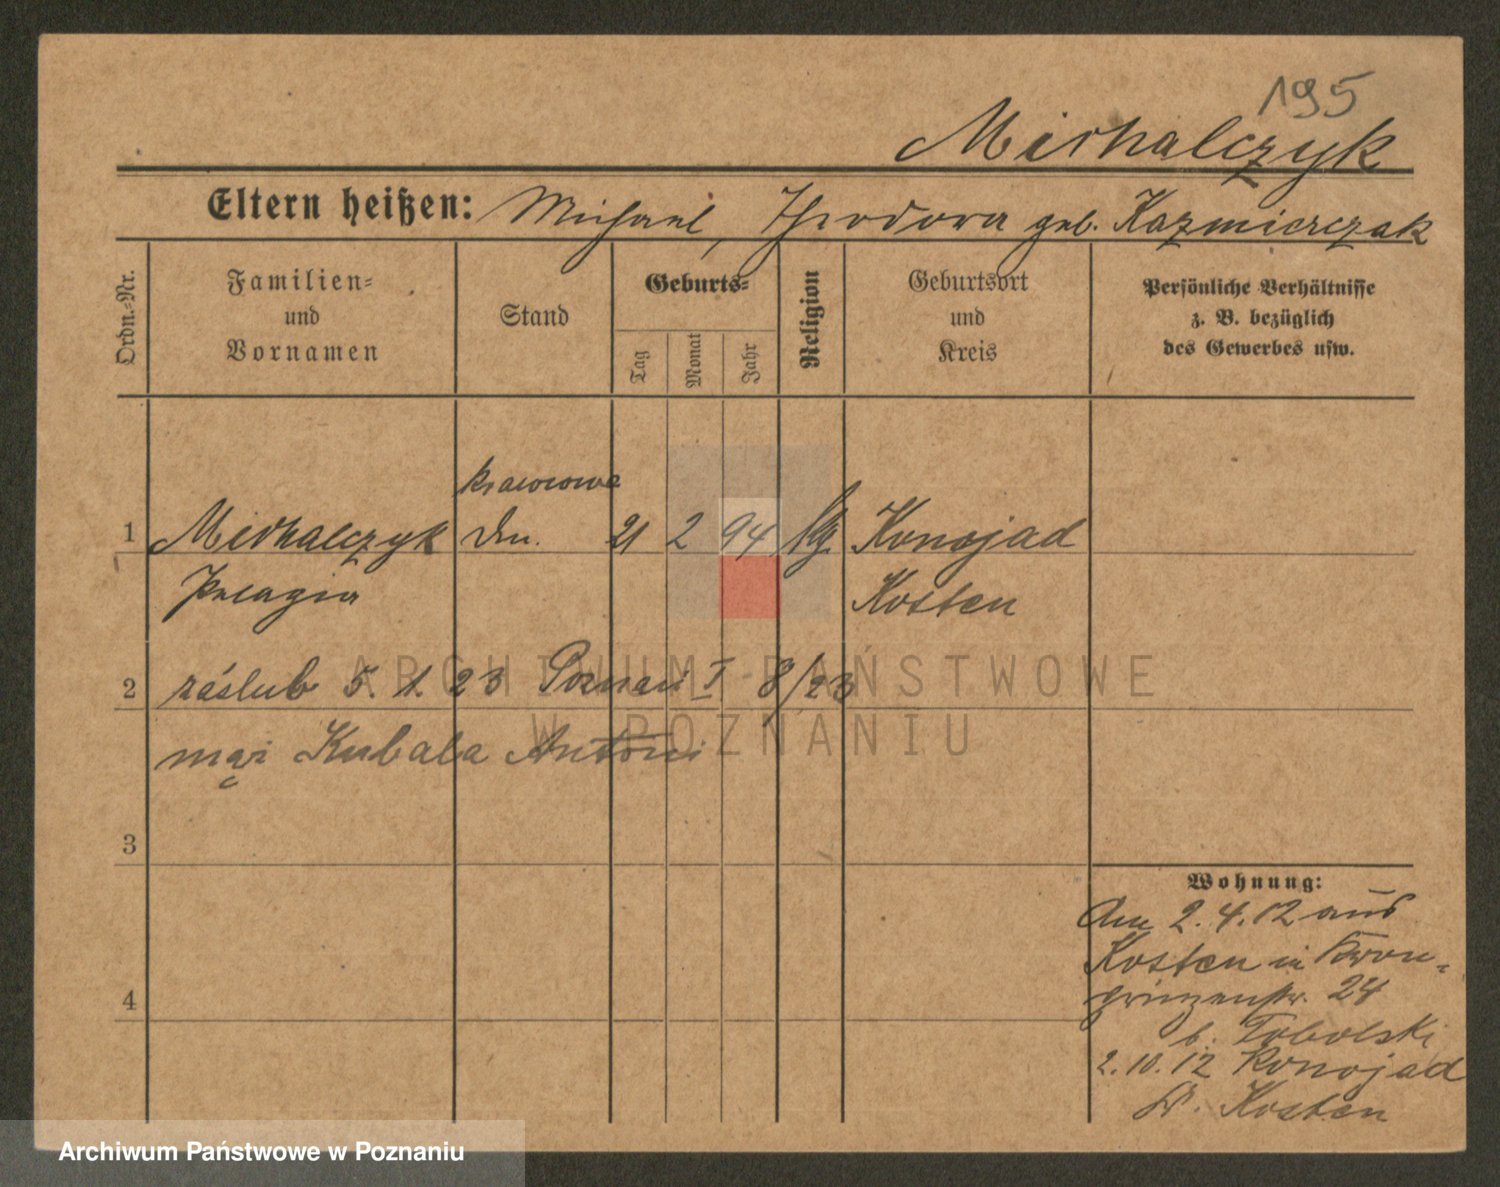 195
Michalczyk
Eltern heißen: Michael, Theodora geb. Kazmierczak
Ordn.-Nr.
Familien-
und
Vornamen
Stand
Geburts-
Tag
Monat
Jahr
Religion
Geburtsort
und
Kreis
Persönliche Verhältnisse
z. B. bezüglich
des Gewerbes usw.
krawcowa
1 Michalczyk 21 2 94 Konojad
Pelagia Kosten
2 zaślub 5. 1. 23 Poznań I 8/23
mąż Kubala Antoni
3
4
Wohnung:
Am 2. 4. 12 aus
Kosten in Kron-
prinzenstr. 24
b. Tobolski
2. 10. 12 Konojad
Kr. Kosten
ARCHIWUM PAŃSTWOWE
W POZNANIU
Archiwum Państwowe w Poznaniu